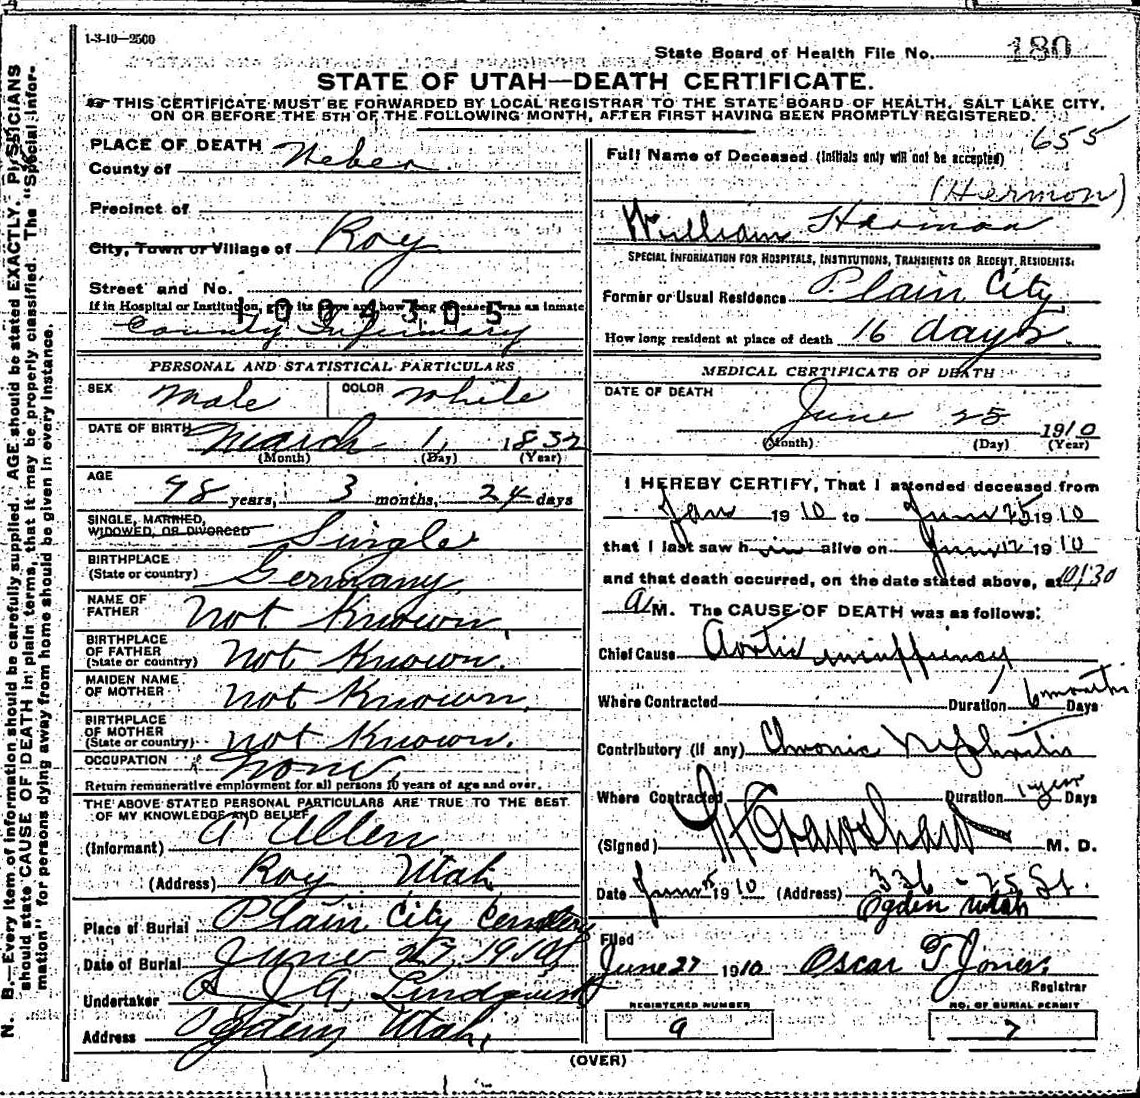 1-3-10—2500
State Board of Health File No. 180
STATE OF UTAH—DEATH CERTIFICATE.
THIS CERTIFICATE MUST BE FORWARDED BY LOCAL REGISTRAR TO THE STATE BOARD OF HEALTH, SALT LAKE CITY,
ON OR BEFORE THE 5TH OF THE FOLLOWING MONTH, AFTER FIRST HAVING BEEN PROMPTLY REGISTERED.
655
N. B.—Every item of information should be carefully supplied. AGE should be stated EXACTLY. PHYSICIANS
should state CAUSE OF DEATH in plain terms, that it may be properly classified. The "Special Infor-
mation" for persons dying away from home should be given in every instance.
PLACE OF DEATH
County of Weber
Precinct of
City, Town or Village of Roy
Street and No.
If in Hospital or Institution, give its name and how long deceased was as inmate
1004305
County Infirmary
PERSONAL AND STATISTICAL PARTICULARS
SEX Male COLOR White
DATE OF BIRTH March 1, 1832
(Month) (Day) (Year)
AGE 98 years, 3 months, 24 days
SINGLE, MARRIED,
WIDOWED, OR DIVORCED Single
BIRTHPLACE
(State or country) Germany
NAME OF
FATHER Not Known.
BIRTHPLACE
OF FATHER
(State or country) Not Known.
MAIDEN NAME
OF MOTHER Not Known.
BIRTHPLACE
OF MOTHER
(State or country) Not Known.
OCCUPATION None.
Return remunerative employment for all persons 10 years of age and over.
THE ABOVE STATED PERSONAL PARTICULARS ARE TRUE TO THE BEST
OF MY KNOWLEDGE AND BELIEF
(Informant) A Allen
(Address) Roy Utah
Place of Burial Plain City Cemetery
Date of Burial June 27, 1910
Undertaker J. A. Lindquist
Address Ogden, Utah.
Full Name of Deceased (Initials only will not be accepted)
(Hermon)
William Harmon
SPECIAL INFORMATION FOR HOSPITALS, INSTITUTIONS, TRANSIENTS OR RECENT RESIDENTS.
Former or Usual Residence Plain City
How long resident at place of death 16 days.
MEDICAL CERTIFICATE OF DEATH
DATE OF DEATH
June 25 1910
(Month) (Day) (Year)
I HEREBY CERTIFY, That I attended deceased from
Jan 1910 to June 25 1910
that I last saw him alive on June 12 1910
and that death occurred, on the date stated above, at 10:30
A M. The CAUSE OF DEATH was as follows:
Chief Cause Aortic insuffiency
Where Contracted Duration 6 months Days
Contributory (if any) Chronic Nephritis
Where Contracted Duration 1 year Days
(Signed) Crawshaw M. D.
Date June 1910 (Address) 336 - 25 St.
Ogden Utah
Filed
June 27 1910 Oscar T Jones.
Registrar
REGISTERED NUMBER
9
NO. OF BURIAL PERMIT
7
(OVER)